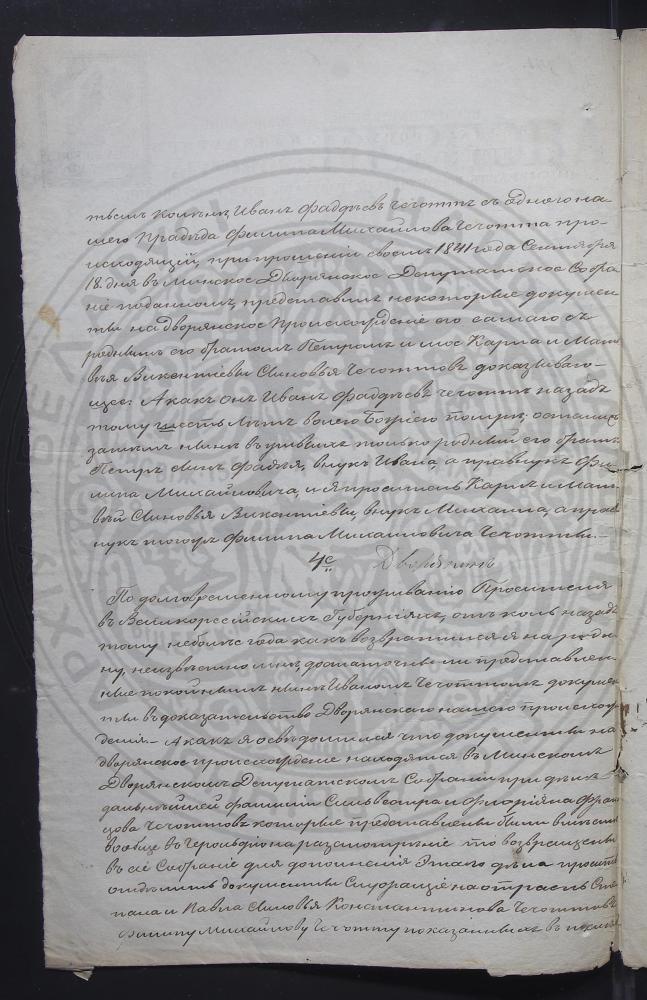 Иванъ Фадѣевъ Чечоттъ съ одного на-
шего Прадѣда Филипа Михайлова Чечотта про-
исходящій, при прошеніи своемъ 1841 года Сентября
18 дня въ Минское Дворянское Депутатское Собра-
ніе поданномъ, представилъ некоторые докумен-
ты на дворянское Происхожденіе его самаго съ
роднымъ его братомъ Петромъ и мое Карла и Мат-
вѣя Викентіевы Сыновья Чечоттовъ доказываю-
щее: А какъ онъ Иванъ Фадѣевъ Чечоттъ назадъ
тому шесть лѣтъ волею Божіею помре; остались
затѣмъ нынѣ въ живыхъ только родный его братъ
Петръ сынъ Фадѣя, внукъ Ивана, а правнукъ Фи-
липа Михайловича, и я проситель Карлъ и Мат-
вѣй Сыновья Викентіевы, внуки Михаила, а прав-
нуки тогожъ Филипа Михайловича Чечотты.—
4е Дворянинъ
По долговременному проживанію Просителя
въ Великороссійскихъ Губерніяхъ, отъ коль назадъ
тому неболѣе года какъ возвратился я на роди-
ну, неизвѣстно мнѣ, достаточны ли представлен-
ные покойнымъ нынѣ Иваномъ Чечоттомъ докумен-
ты въ доказательство Дворянскаго нашего происхож-
денія— А какъ я освѣдомился что документы на
дворянское происхожденіе находятся въ Минскомъ
Дворянскомъ Депутатскомъ Собраніи при дѣлѣ
дальнѣйшей фамиліи Сильвестра и Флоріяна Фран-
цова Чечоттовъ которые представлены были вмѣстѣ
вообще въ Герольдію на разсмотрѣніе то возвращены
въ сіе Собраніе для дополненія Этаго дѣла
документы Служащіе на отрасль Сте-
пана и Павла Сыновья Константинова Чечоттовъ
Филипу Михайлову Чечотту показанныхъ въ